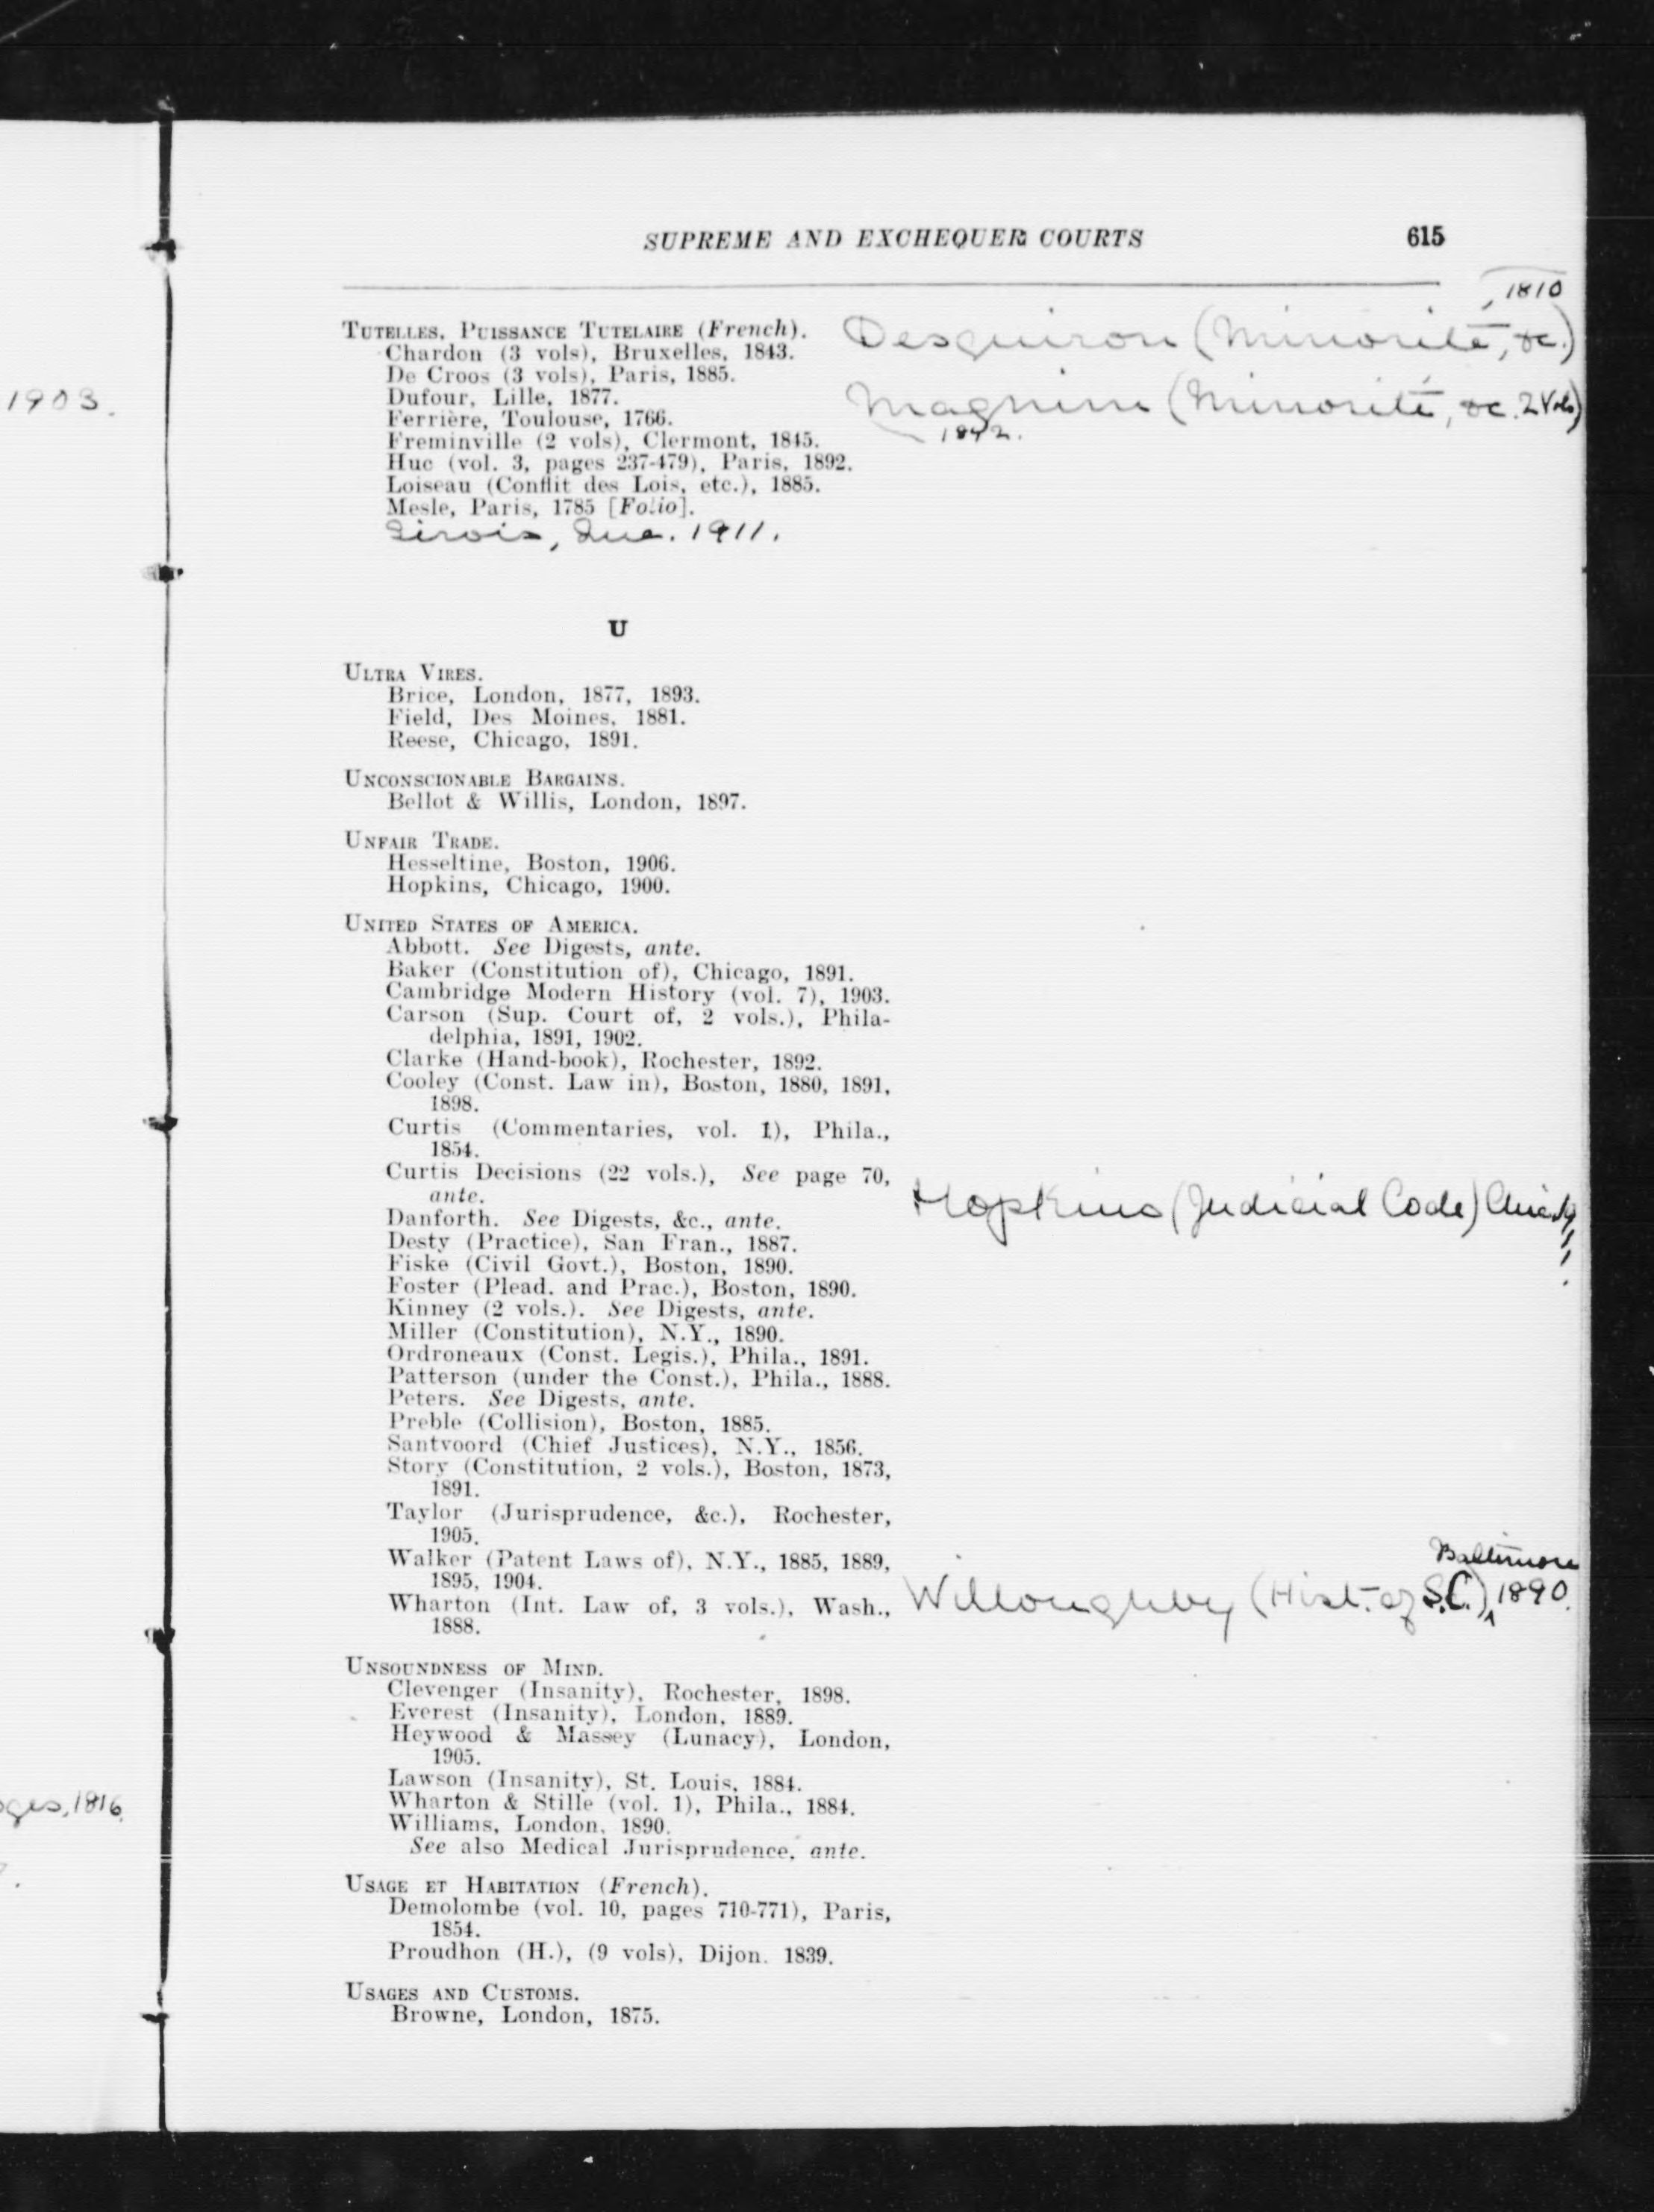 SUPREME AND EXCHEQUER COURTS 615
, 1810
TUTELLES, PUISSANCE TUTELAIRE (French). Desquiron (Minorité, &c.)
Chardon (3 vols), Bruxelles, 1843.
De Croos (3 vols), Paris, 1885.
Dufour, Lille, 1877. Magnin (Minorité, &c. 2 Vols)
1903.
Ferrière, Toulouse, 1766.
1842.
Freminville (2 vols), Clermont, 1845.
Huc (vol. 3, pages 237-479), Paris, 1892.
Loiseau (Conflit des Lois, etc.), 1885.
Mesle, Paris, 1785 [Folio].
Sirois, Que. 1911.
U
ULTRA VIRES.
Brice, London, 1877, 1893.
Field, Des Moines, 1881.
Reese, Chicago, 1891.
UNCONSCIONABLE BARGAINS.
Bellot & Willis, London, 1897.
UNFAIR TRADE.
Hesseltine, Boston, 1906.
Hopkins, Chicago, 1900.
UNITED STATES OF AMERICA.
Abbott. See Digests, ante.
Baker (Constitution of), Chicago, 1891.
Cambridge Modern History (vol. 7), 1903.
Carson (Sup. Court of, 2 vols.), Phila-
delphia, 1891, 1902.
Clarke (Hand-book), Rochester, 1892.
Cooley (Const. Law in), Boston, 1880, 1891,
1898.
Curtis (Commentaries, vol. 1), Phila.,
1854.
Curtis Decisions (22 vols.), See page 70,
ante.
Hopkins (Judicial Code)
Danforth. See Digests, &c., ante.
Desty (Practice), San Fran., 1887.
Fiske (Civil Govt.), Boston, 1890.
Foster (Plead. and Prac.), Boston, 1890.
Kinney (2 vols.). See Digests, ante.
Miller (Constitution), N.Y., 1890.
Ordroneaux (Const. Legis.), Phila., 1891.
Patterson (under the Const.), Phila., 1888.
Peters. See Digests, ante.
Preble (Collision), Boston, 1885.
Santvoord (Chief Justices), N.Y., 1856.
Story (Constitution, 2 vols.), Boston, 1873,
1891.
Taylor (Jurisprudence, &c.), Rochester,
1905.
Walker (Patent Laws of), N.Y., 1885, 1889,
1895, 1904.
Baltimore
Wharton (Int. Law of, 3 vols.), Wash., Willoughby (Hist. of S.C.) ^ 1890.
1888.
UNSOUNDNESS OF MIND.
Clevenger (Insanity), Rochester, 1898.
Everest (Insanity), London, 1889.
Heywood & Massey (Lunacy), London,
1905.
Lawson (Insanity), St. Louis, 1884.
Wharton & Stille (vol. 1), Phila., 1884.
, 1816.
Williams, London, 1890.
See also Medical Jurisprudence, ante.
USAGE ET HABITATION (French).
Demolombe (vol. 10, pages 710-771), Paris,
1854.
Proudhon (H.), (9 vols), Dijon. 1839.
USAGES AND CUSTOMS.
Browne, London, 1875.